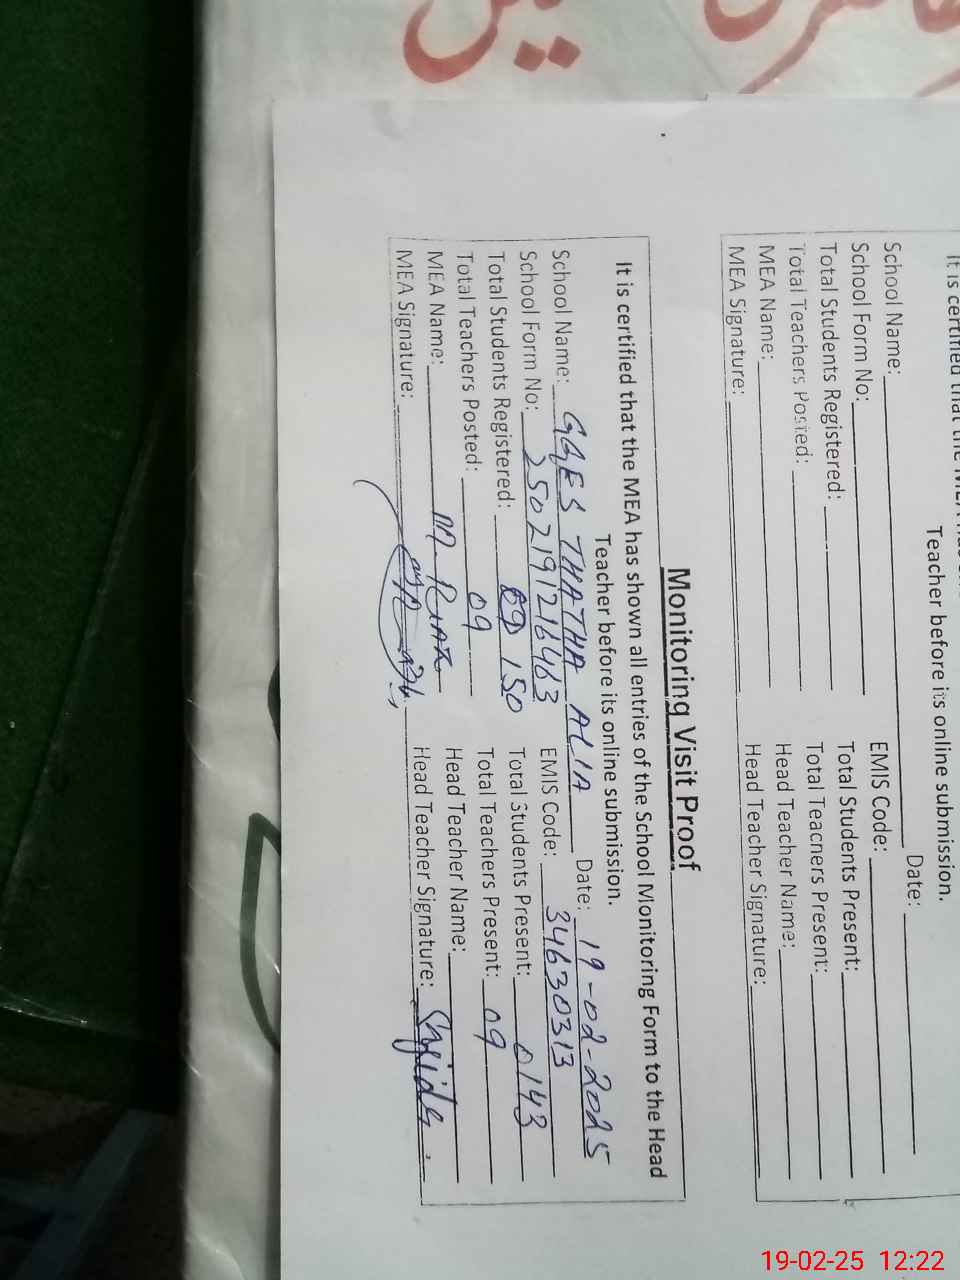 It is certified that the
Teacher before its online submission.
School Name: Date:
School Form No: EMIS Code:
Total Students Registered: Total Students Present:
Total Teachers Posted: Total Teachers Present:
MEA Name: Head Teacher Name:
MEA Signature: Head Teacher Signature:
Monitoring Visit Proof
It is certified that the MEA has shown all entries of the School Monitoring Form to the Head
Teacher before its online submission.
School Name: GGES THATHA ALIA Date: 19-02-2025
School Form No: 2502191216463 EMIS Code: 34630313
Total Students Registered: 150 Total Students Present: 0143
Total Teachers Posted: 09 Total Teachers Present: 09
MEA Name: M RIAZ Head Teacher Name:
MEA Signature: Head Teacher Signature:
19-02-25 12:22